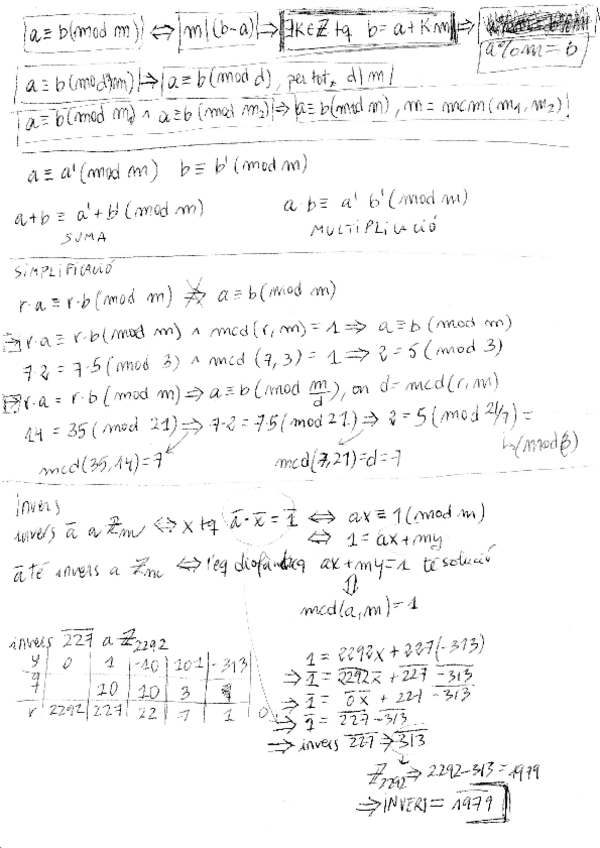 a ≡ b (mod m) ⇔ m | (b-a) ⇒ ∃K∈ℤ tq b = a + Km ⇒
a%m = b
a ≡ b (mod m) ⇒ a ≡ b (mod d), per tot d | m
a ≡ b (mod m₁) ∧ a ≡ b (mod m₂) ⇒ a ≡ b (mod m), m = mcm (m₁, m₂)
a ≡ a' (mod m) b ≡ b' (mod m)
a+b ≡ a'+b' (mod m) a·b ≡ a' b' (mod m)
SUMA MULTIPLICACIÓ
SIMPLIFICACIÓ
r·a ≡ r·b (mod m) ⇏ a ≡ b (mod m)
r·a ≡ r·b (mod m) ∧ mcd (r, m) = 1 ⇒ a ≡ b (mod m)
7·2 = 7·5 (mod 3) ∧ mcd (7, 3) = 1 ⇒ 2 = 5 (mod 3)
r·a = r·b (mod m) ⇒ a ≡ b (mod m/d), on d = mcd (r, m)
14 = 35 (mod 21) ⇒ 7·2 = 7·5 (mod 21) ⇒ 2 = 5 (mod 21/7) =
↳ (mod 3)
mcd (35, 14) = 7 mcd (7, 21) = d = 7
invers
invers a̅ a ℤm ⇔ x tq a̅·x̅ = 1̅ ⇔ ax ≡ 1 (mod m)
⇔ 1 = ax + my
a̅ té invers a ℤm ⇔ l'eq diofàntica ax + my = 1 té solució
⇕
mcd (a, m) = 1
invers 2̅2̅7̅ a ℤ2292
y 0 1 -10 101 -313
q 10 10 3
r 2292 227 22 7 1 0
1 = 2292x + 227 (-313)
⇒ 1̅ = 2̅2̅9̅2̅x̅ + 2̅2̅7̅ -3̅1̅3̅
⇒ 1̅ = 0̅x̅ + 227 -3̅1̅3̅
⇒ 1̅ = 2̅2̅7̅ -3̅1̅3̅
⇒ invers 2̅2̅7̅ ⇒ -3̅1̅3̅
ℤ2292 ⇒ 2292 - 313 = 1979
⇒ INVERS = 1̅9̅7̅9̅